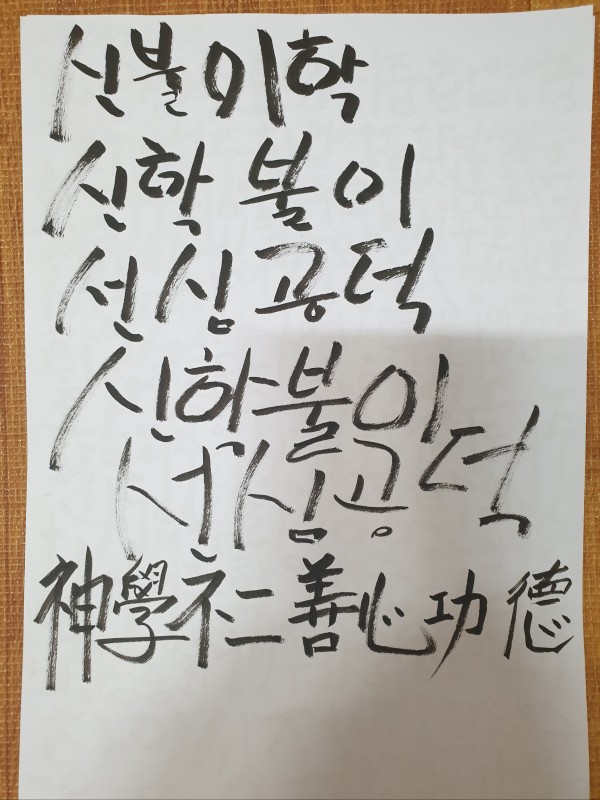 신불이학
신학 불이
선심공덕
신학불이
선심공덕
神學不二 善心功德